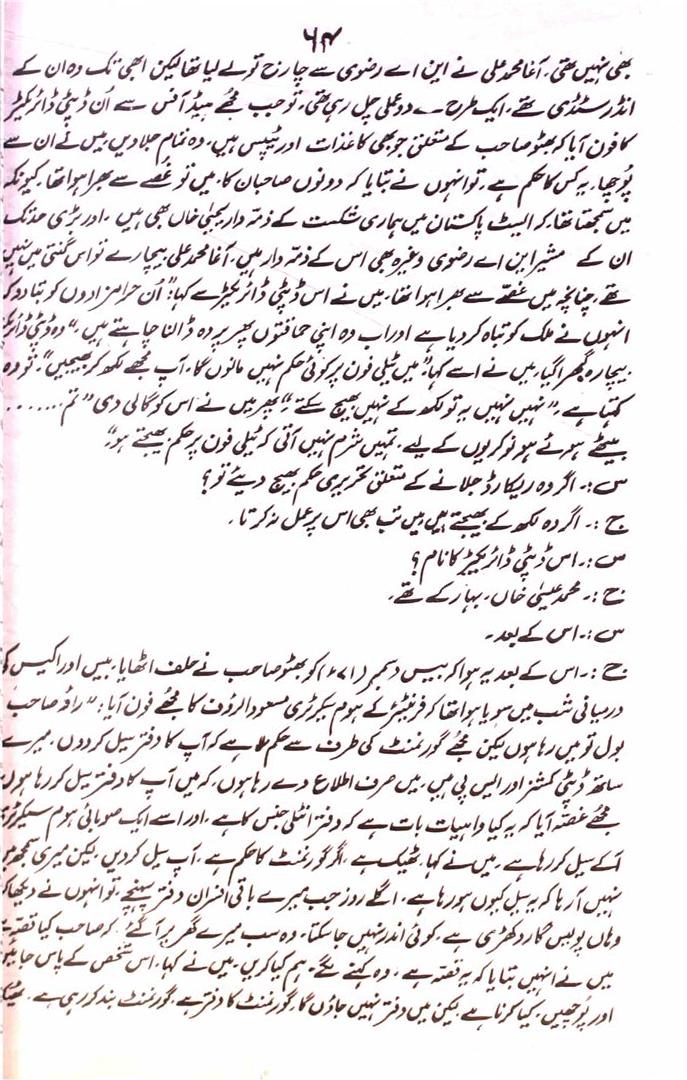 ۶۴
بھی نہیں تھی۔ آغا محمد علی نے این اے رضوی سے چارج تو لے لیا تھا لیکن ابھی تک وہ ان کے
انڈر سٹڈی تھے۔ ایک طرح سے دو عملی چل رہی تھی۔ تو جب مجھے ہیڈ آفس سے اُن ڈپٹی ڈائریکٹر
کا فون آیا کہ بھٹو صاحب کے متعلق جو بھی کاغذات اور ٹیپس ہیں، وہ تمام جلا دیں میں نے ان سے
پوچھا، یہ کس کا حکم ہے، تو انہوں نے بتایا کہ دونوں صاحبان کا، میں تو غصے سے بھرا ہوا تھا، کیونکہ
میں سمجھتا تھا، کہ ایسٹ پاکستان میں ہماری شکست کے ذمہ دار یحییٰ خاں بھی ہیں، اور بڑی حد تک
ان کے مشیر این اے رضوی وغیرہ بھی اس کے ذمہ دار ہیں۔ آغا محمد علی بیچارے تو اس گنتی میں نہیں
تھے، چنانچہ میں غصے سے بھرا ہوا تھا، میں نے اس ڈپٹی ڈائریکٹر سے کہا: "اُن حرامزادوں کو بتا دو کہ
انہوں نے ملک کو تباہ کر دیا ہے اور اب وہ اپنی حماقتوں پر پردہ ڈالنا چاہتے ہیں۔" وہ ڈپٹی ڈائریکٹر
بیچارہ گھبرا گیا، میں نے اسے کہا: "میں ٹیلی فون پر کوئی حکم نہیں مانوں گا، آپ مجھے لکھ کر بھیجیں"۔ تو وہ
کہتا ہے، "نہیں نہیں یہ تو لکھ کے نہیں بھیج سکتے"، پھر میں نے اس کو گالی دی "تم ........
بیٹھے ہوئے ہو نوکریوں کے لیے۔ تمہیں شرم نہیں آتی کہ ٹیلی فون پر حکم بھیجتے ہو"۔
س :۔ اگر وہ ریکارڈ جلانے کے متعلق تحریری حکم بھیج دیتے تو؟
ج :۔ اگر وہ لکھ کے بھیجتے میں تب بھی اس پر عمل نہ کرتا۔
س :۔ اس ڈپٹی ڈائریکٹر کا نام؟
ج :۔ محمد عیسیٰ خاں۔ بہار کے تھے۔
س :۔ اس کے بعد۔
ج :۔ اس کے بعد یہ ہوا کہ بیس دسمبر (۷۱ء) کو بھٹو صاحب نے حلف اٹھایا، بیس اور اکیس کی
درمیانی شب میں سویا ہوا تھا کہ فرنٹیئر کے ہوم سیکرٹری مسعود الرؤف کا مجھے فون آیا: "راؤ صاحب
بول تو میں رہا ہوں لیکن مجھے گورنمنٹ کی طرف سے حکم ملا ہے کہ آپ کا دفتر سیل کر دوں، میرے
ساتھ ڈپٹی کمشنر اور ایس پی ہیں، میں صرف اطلاع دے رہا ہوں، کہ میں آپ کا دفتر سیل کر رہا ہوں
مجھے غصہ آیا کہ یہ کیا واہیات بات ہے کہ دفتر انٹیلی جنس کا ہے، اور اسے ایک صوبائی ہوم سیکرٹری
آکے سیل کر رہا ہے، میں نے کہا، ٹھیک ہے، اگر گورنمنٹ کا حکم ہے، آپ سیل کر دیں، لیکن میری سمجھ میں
نہیں آرہا کہ یہ سیل کیوں ہو رہا ہے، اگلے روز جب میرے باقی افسران دفتر پہنچے، تو انہوں نے دیکھا کہ
وہاں پولیس گارد کھڑی ہے، کوئی اندر نہیں جا سکتا۔ وہ سب میرے گھر پر آگئے کہ صاحب کیا قصہ ہے
میں نے انہیں بتایا کہ یہ قصہ ہے، وہ کہنے لگے، ہم کیا کریں، میں نے کہا، اس شخص کے پاس جائیں
اور پوچھیں، کیا کرنا ہے، لیکن میں دفتر نہیں جاؤں گا، گورنمنٹ کا دفتر ہے، گورنمنٹ بند کر رہی ہے، ٹھیک